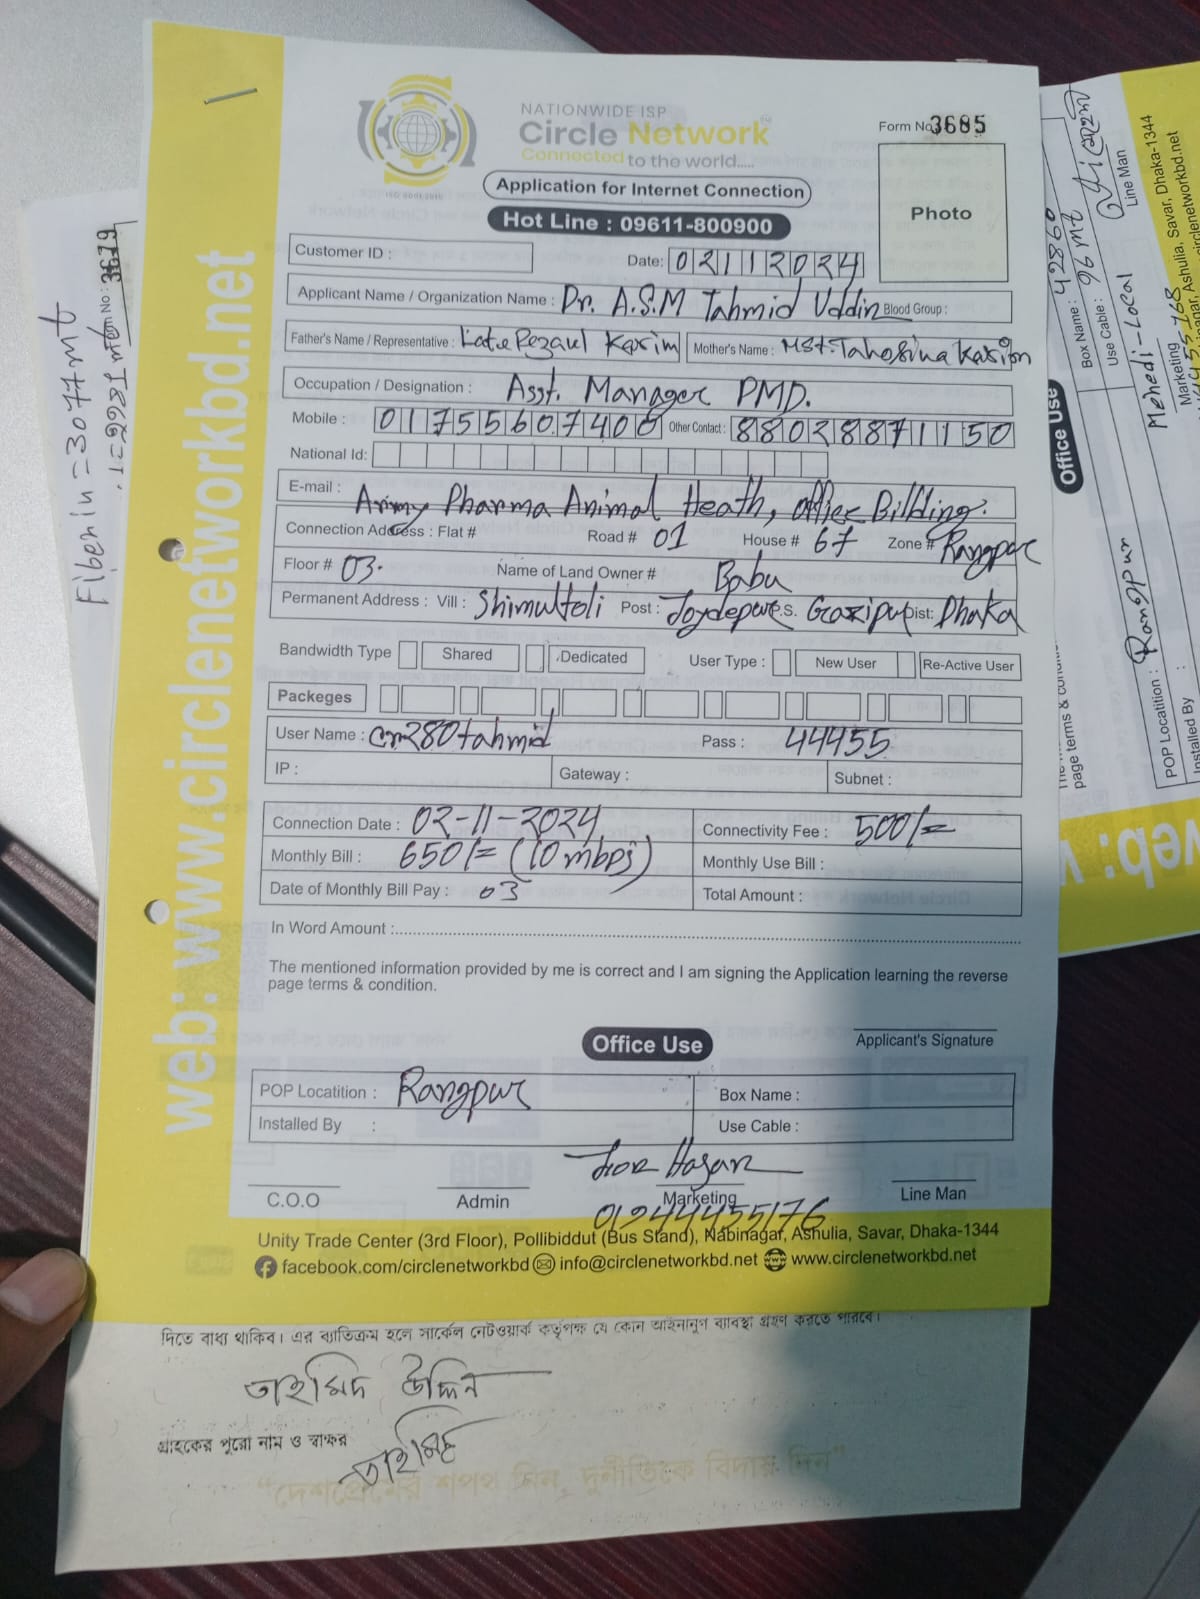 NATIONWIDE ISP
Circle Network
Connected to the world.....
Form No 3685
Application for Internet Connection
Hot Line : 09611-800900
Photo
Customer ID :
Date: 02112024
Applicant Name / Organization Name : Dr. A.S.M Tahmid Uddin Blood Group :
Father's Name / Representative : Late Rezaul Karim Mother's Name : Mst. Karim
Occupation / Designation : Asst. Manager PMD.
Mobile : 01755607400 Other Contact : 88028871150
National Id:
E-mail :
Pharma Animal Heath, office Bilding.
Connection Address : Flat # Road # 01 House # 67 Zone # Rangpur
Floor # 03. Name of Land Owner # Babu
Permanent Address : Vill : Shimultoli Post : Joydepur P.S. Gazipur Dist: Dhaka
Bandwidth Type Shared Dedicated User Type : New User Re-Active User
Packeges
User Name : cn280tahmid Pass : 44455
IP : Gateway : Subnet :
Connection Date : 02-11-2024 Connectivity Fee : 500/=
Monthly Bill : 650/= (10 mbps) Monthly Use Bill :
Date of Monthly Bill Pay : 03 Total Amount :
In Word Amount :
The mentioned information provided by me is correct and I am signing the Application learning the reverse
page terms & condition.
Applicant's Signature
Office Use
POP Locatition : Rangpur Box Name :
Installed By : Use Cable :
Hasan
C.O.O Admin Marketing Line Man
01944455176
Unity Trade Center (3rd Floor), Pollibiddut (Bus Stand), Nabinagar, Ashulia, Savar, Dhaka-1344
facebook.com/circlenetworkbd info@circlenetworkbd.net www.circlenetworkbd.net
web: www.circlenetworkbd.net
দিতে বাধ্য থাকিব। এর ব্যতিক্রম হলে সার্কেল নেটওয়ার্ক কর্তৃপক্ষ যে কোন আইনানুগ ব্যবস্থা গ্রহণ করতে পারবে।
তাহমিদ উদ্দিন
গ্রাহকের পুরো নাম ও স্বাক্ষর
তাহমিদ
"দেশপ্রেমের শপথ নিন, দুর্নীতিকে বিদায় দিন"
No: 3679
Fiber in = 3077 mt
Box Name : 42860
Use Cable : 96 mt
Line Man
Mehedi-Local
Marketing
Ashulia, Savar, Dhaka-1344
Office Use
page terms &
POP Locatition : Rangpur
Installed By :